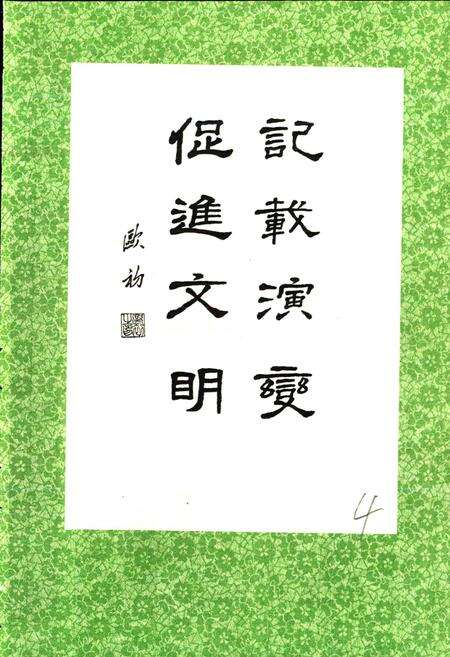 記載演變
促進文明
歐初
4